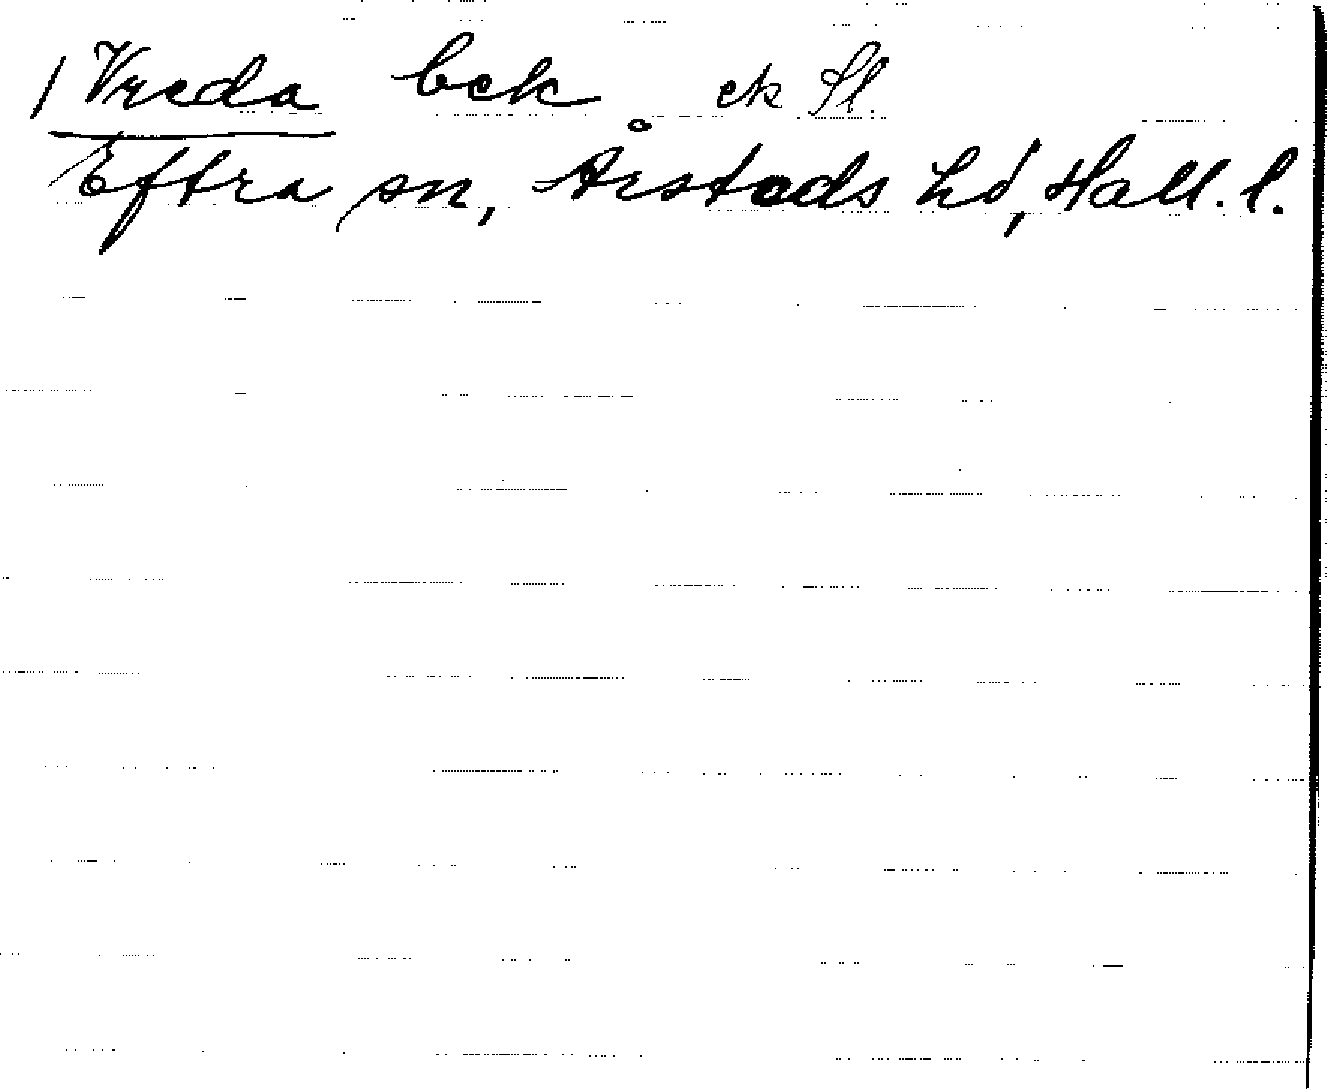 / Vreda bek ek Sl.
Eftra sn, Årstads hd, Hall. l.